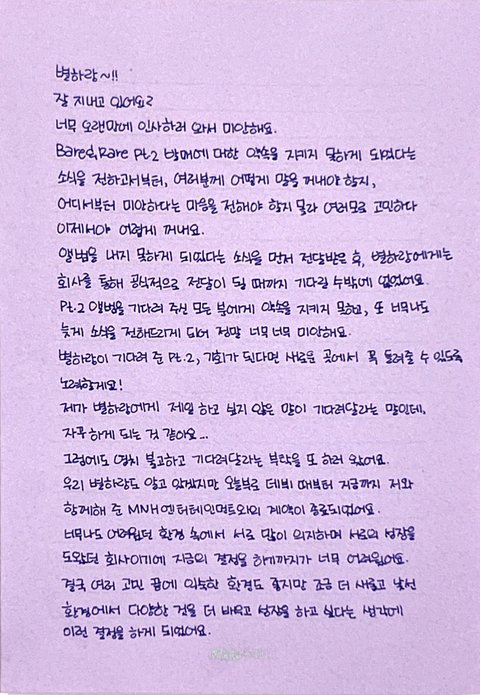 별하랑~!!
잘 지내고 있어요?
너무 오랜만에 인사하러 와서 미안해요.
Bare&Rare Pt.2 발매에 대한 약속을 지키지 못하게 되었다는
소식을 전하고서부터, 여러분께 어떻게 말을 꺼내야 할지,
어디서부터 미안하다는 마음을 전해야 할지 몰라 여러모로 고민하다
이제서야 어렵게 꺼내요.
앨범을 내지 못하게 되었다는 소식을 먼저 전달받은 후, 별하랑에게는
회사를 통해 공식적으로 전달이 될 때까지 기다릴 수밖에 없었어요.
Pt.2 앨범을 기다려 주신 모든 분에게 약속을 지키지 못하고, 또 너무나도
늦게 소식을 전해드리게 되어 정말 너무 너무 미안해요.
별하랑이 기다려 준 Pt.2, 기회가 된다면 새로운 곳에서 꼭 들려줄 수 있도록
노력할게요!
제가 별하랑에게 제일 하고 싶지 않은 말이 기다려달라는 말인데,
자꾸 하게 되는 것 같아요...
그럼에도 염치 불고하고 기다려달라는 부탁을 또 하러 왔어요.
우리 별하랑도 알고 있겠지만 오늘부로 데뷔 때부터 지금까지 저와
함께해 준 MNH엔터테인먼트와의 계약이 종료되었어요.
너무나도 어려웠던 환경 속에서 서로 많이 의지하며 서로의 성장을
도왔던 회사이기에 지금의 결정을 하기까지가 너무 어려웠어요.
결국 여러 고민 끝에 익숙한 환경도 좋지만 조금 더 새롭고 낯선
환경에서 다양한 것을 더 배우고 성장을 하고 싶다는 생각에
이런 결정을 하게 되었어요.